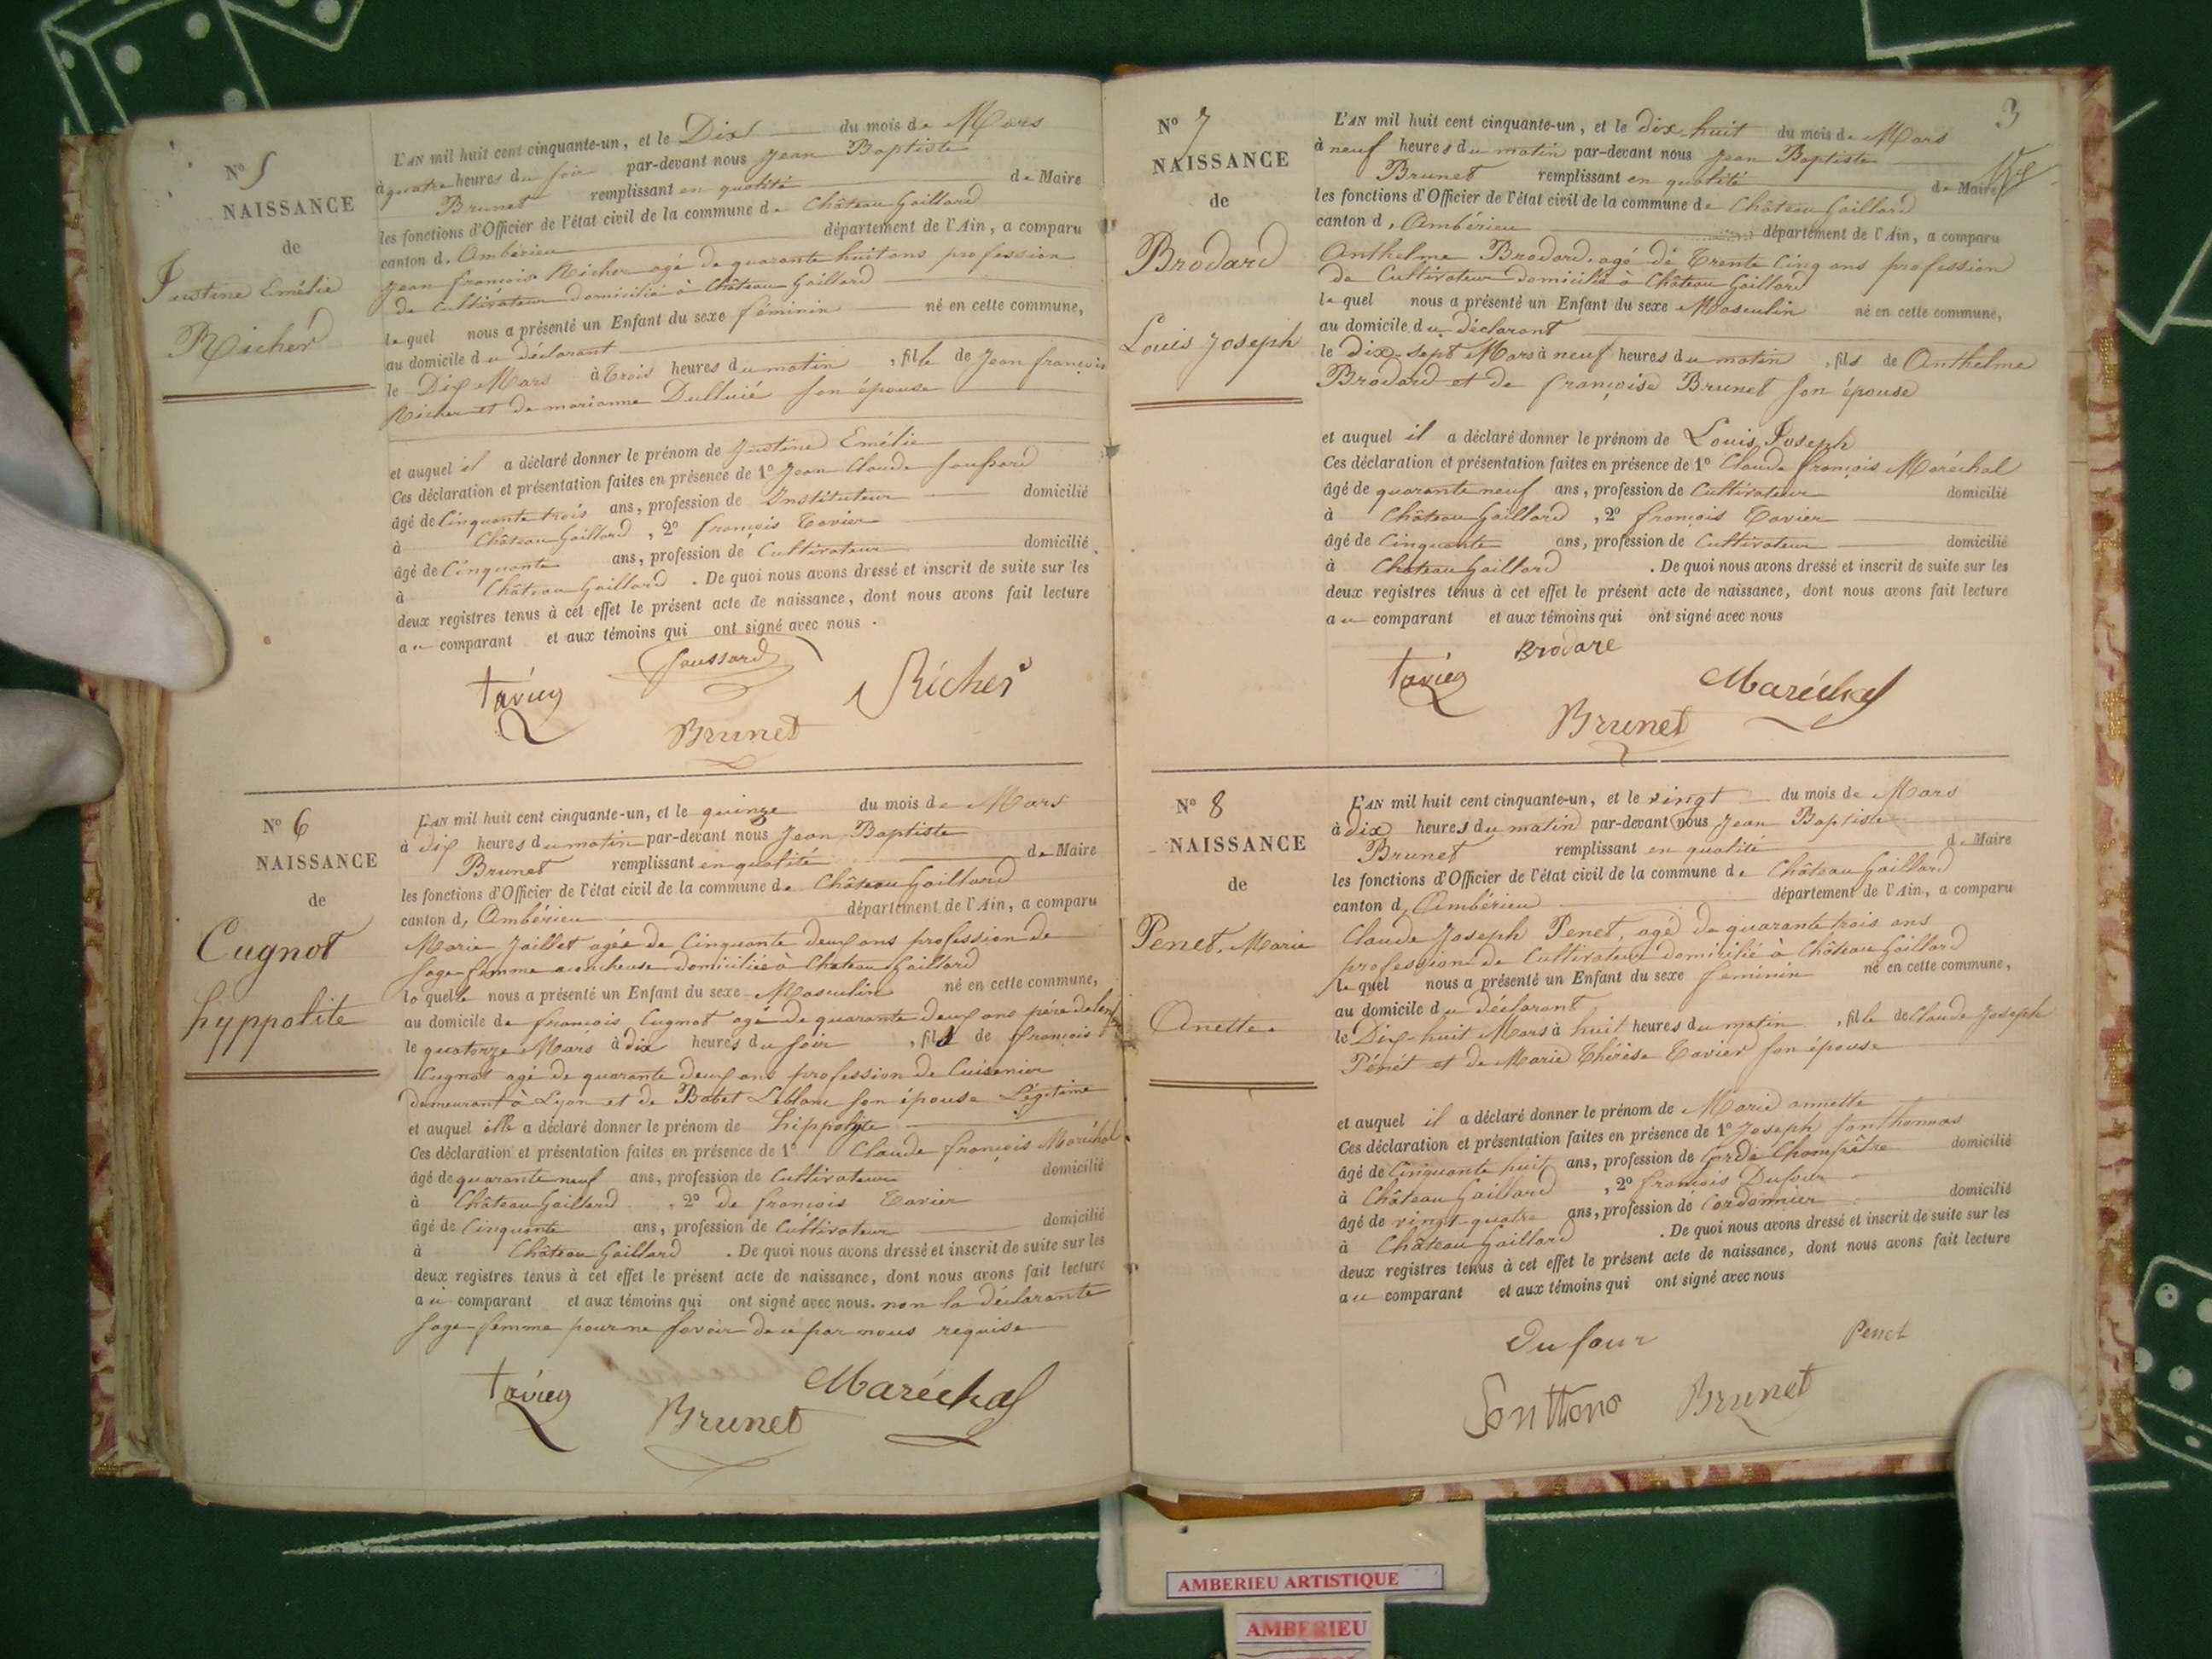 N° 5
NAISSANCE
de
Justine Emélie
Richer
L'AN mil huit cent cinquante-un, et le Dix du mois de Mars
à quatre heures du soir par-devant nous Jean Baptiste
Brunet remplissant en qualité de Maire
les fonctions d'Officier de l'état civil de la commune de Château Gaillard
canton d, Ambérieu département de l'Ain, a comparu
Jean françois Richer agé de quarante huit ans profession
de Cultivateur domicilié à Château Gaillard
le quel nous a présenté un Enfant du sexe féminin né en cette commune,
au domicile du déclarant
le Dix Mars à trois heures du matin , fille de Jean françois
Richer et de marianne son épouse
et auquel il a déclaré donner le prénom de Justine Emélie
Ces déclaration et présentation faites en présence de 1° Jean Claude Joussard
âgé de Cinquante trois ans, profession de Instituteur domicilié
à Château Gaillard , 2° françois Tavier
âgé de Cinquante ans, profession de Cultivateur domicilié
à Château Gaillard . De quoi nous avons dressé et inscrit de suite sur les
deux registres tenus à cet effet le présent acte de naissance, dont nous avons fait lecture
au comparant et aux témoins qui ont signé avec nous .
Joussard
tavier Richer
Brunet
N° 6
NAISSANCE
de
Cugnot
hyppolite
L'AN mil huit cent cinquante-un, et le quinze du mois de Mars
à dix heures du matin par-devant nous Jean Baptiste
Brunet remplissant en qualité de Maire
les fonctions d'Officier de l'état civil de la commune de Château Gaillard
canton d, Ambérieu département de l'Ain, a comparu
Marie Jaillet agée de Cinquante deux ans profession de
sage-femme accoucheuse domiciliée à Château Gaillard
la quelle nous a présenté un Enfant du sexe Masculin né en cette commune,
au domicile de françois Cugnot agé de quarante deux ans père de
le quatorze Mars à dix heures du soir , fils de françois
Cugnot agé de quarante deux ans profession de Cuisinier
demeurant à Lyon et de Babet Leblanc son épouse Légitime
et auquel elle a déclaré donner le prénom de hippolyte
Ces déclaration et présentation faites en présence de 1° Claude françois Maréchal
âgé de quarante neuf ans, profession de Cultivateur domicilié
à Château Gaillard , 2° de françois Tavier
âgé de Cinquante ans, profession de Cultivateur domicilié
à Château Gaillard . De quoi nous avons dressé et inscrit de suite sur les
deux registres tenus à cet effet le présent acte de naissance, dont nous avons fait lecture
au comparant et aux témoins qui ont signé avec nous. non la déclarante
sage-femme pour ne savoir de ce par nous requise
tavier Maréchal
Brunet
3
N° 7
NAISSANCE
de
Brodard
Louis Joseph
L'AN mil huit cent cinquante-un, et le dix-huit du mois de Mars
à neuf heures du matin par-devant nous Jean Baptiste
Brunet remplissant en qualité de Maire
les fonctions d'Officier de l'état civil de la commune de Château Gaillard
canton d, Ambérieu département de l'Ain, a comparu
Anthelme Brodard, agé de trente Cinq ans profession
de Cultivateur domicilié à Château Gaillard
le quel nous a présenté un Enfant du sexe Masculin né en cette commune,
au domicile du déclarant
le dix-sept Mars à neuf heures du matin , fils de Anthelme
Brodard et de françoise Brunet son épouse
et auquel il a déclaré donner le prénom de Louis Joseph
Ces déclaration et présentation faites en présence de 1° Claude françois Maréchal
âgé de quarante neuf ans, profession de Cultivateur domicilié
à Château Gaillard , 2° françois Tavier
âgé de Cinquante ans, profession de Cultivateur domicilié
à Château Gaillard . De quoi nous avons dressé et inscrit de suite sur les
deux registres tenus à cet effet le présent acte de naissance, dont nous avons fait lecture
au comparant et aux témoins qui ont signé avec nous
Brodare
tavier Maréchal
Brunet
N° 8
NAISSANCE
de
Penet, Marie
Anette
L'AN mil huit cent cinquante-un, et le vingt du mois de Mars
à dix heures du matin par-devant nous Jean Baptiste
Brunet remplissant en qualité de Maire
les fonctions d'Officier de l'état civil de la commune de Château Gaillard
canton d, Ambérieu département de l'Ain, a comparu
Claude Joseph Penet, agé de quarante trois ans
profession de Cultivateur domicilié à Château Gaillard
le quel nous a présenté un Enfant du sexe feminin né en cette commune,
au domicile du déclarant
le Dix-huit Mars à huit heures du matin , fille de Claude Joseph
Pénét et de Marie Thérèse Tavier son épouse
et auquel il a déclaré donner le prénom de Marie annette
Ces déclaration et présentation faites en présence de 1° Joseph Sonthonnas
âgé de Cinquante huit ans, profession de Garde Champêtre domicilié
à Château Gaillard , 2° françois Dufour
âgé de vingt-quatre ans, profession de Cordonnier domicilié
à Château Gaillard . De quoi nous avons dressé et inscrit de suite sur les
deux registres tenus à cet effet le présent acte de naissance, dont nous avons fait lecture
au comparant et aux témoins qui ont signé avec nous
Dufour Penet
Brunet
AMBERIEU ARTISTIQUE
AMBERIEU